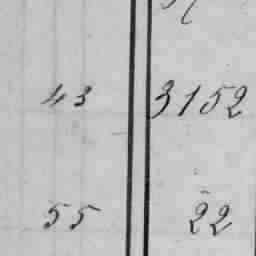 43 3152
55 22